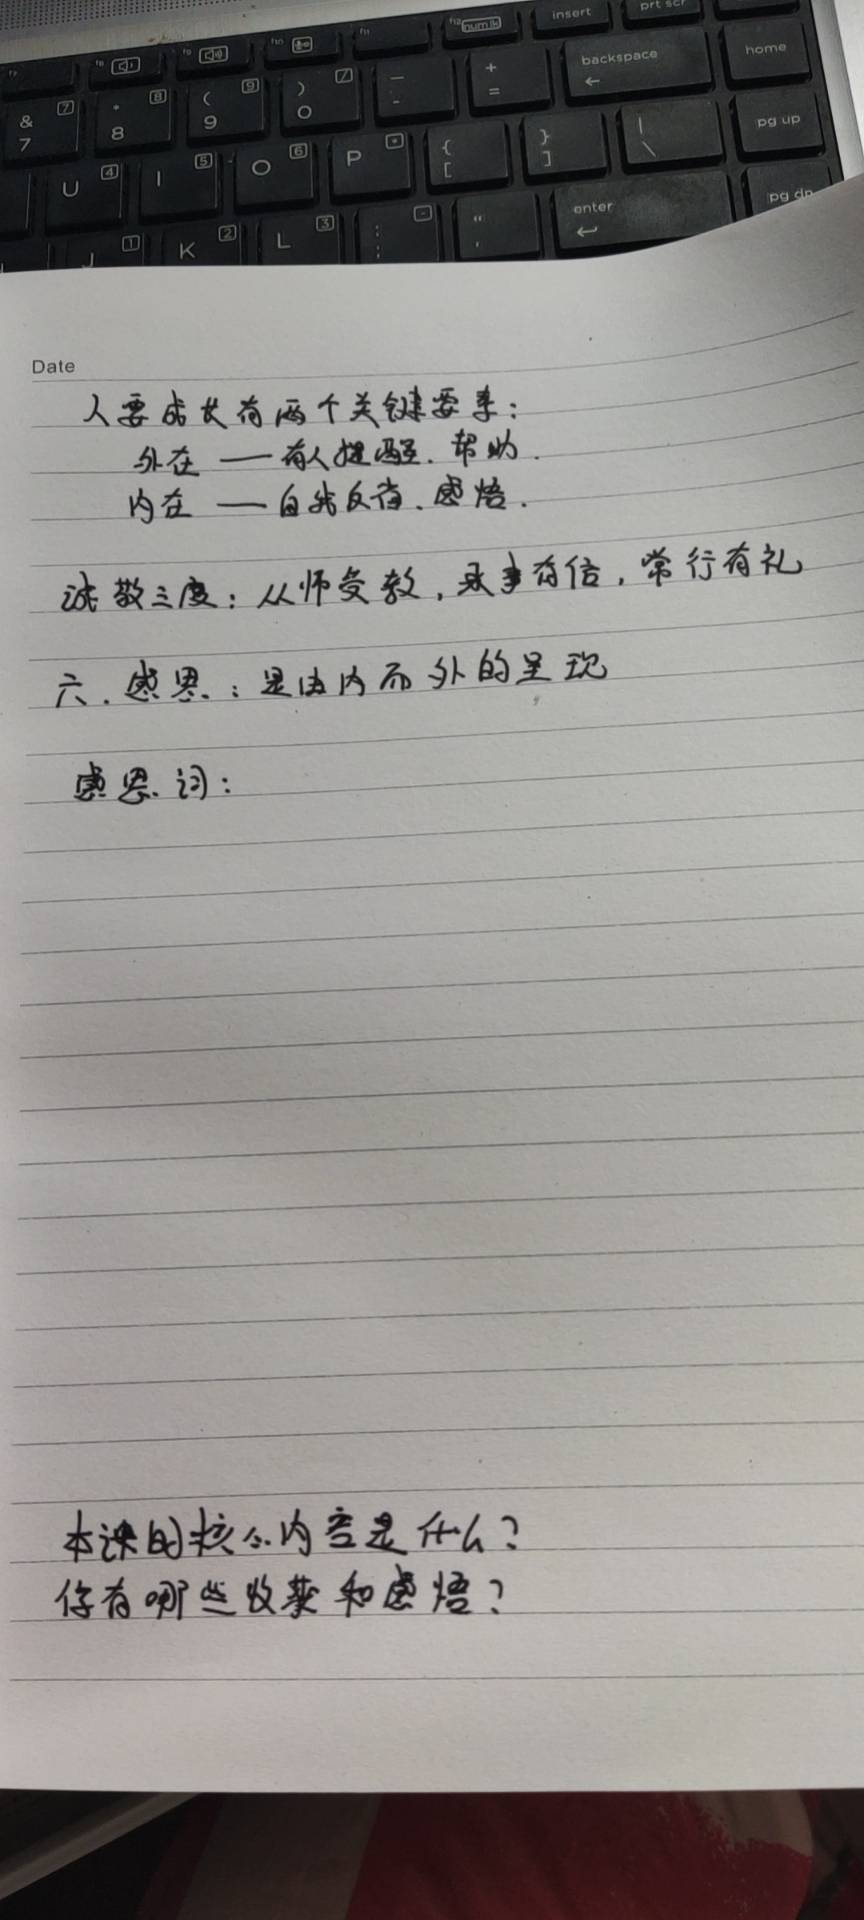 f7 f8 f9 f10 f11 f12 num lk insert prt scr
& 7 7 * 8 8 ( 9 9 ) 0 / _ - + = backspace home
U 4 I 5 O 6 P * { [ } ] | \ pg up
J 1 K 2 L 3 : ; - " ' enter pg dn
Date
人要成长有两个关键要素:
外在 — 有人提醒、帮助.
内在 — 自我反省、感悟.
诚敬三度:从师受教,承事有信,常行有礼
六、感恩:是由内而外的呈现
感恩词:
本课的核心内容是什么?
你有哪些收获和感悟?